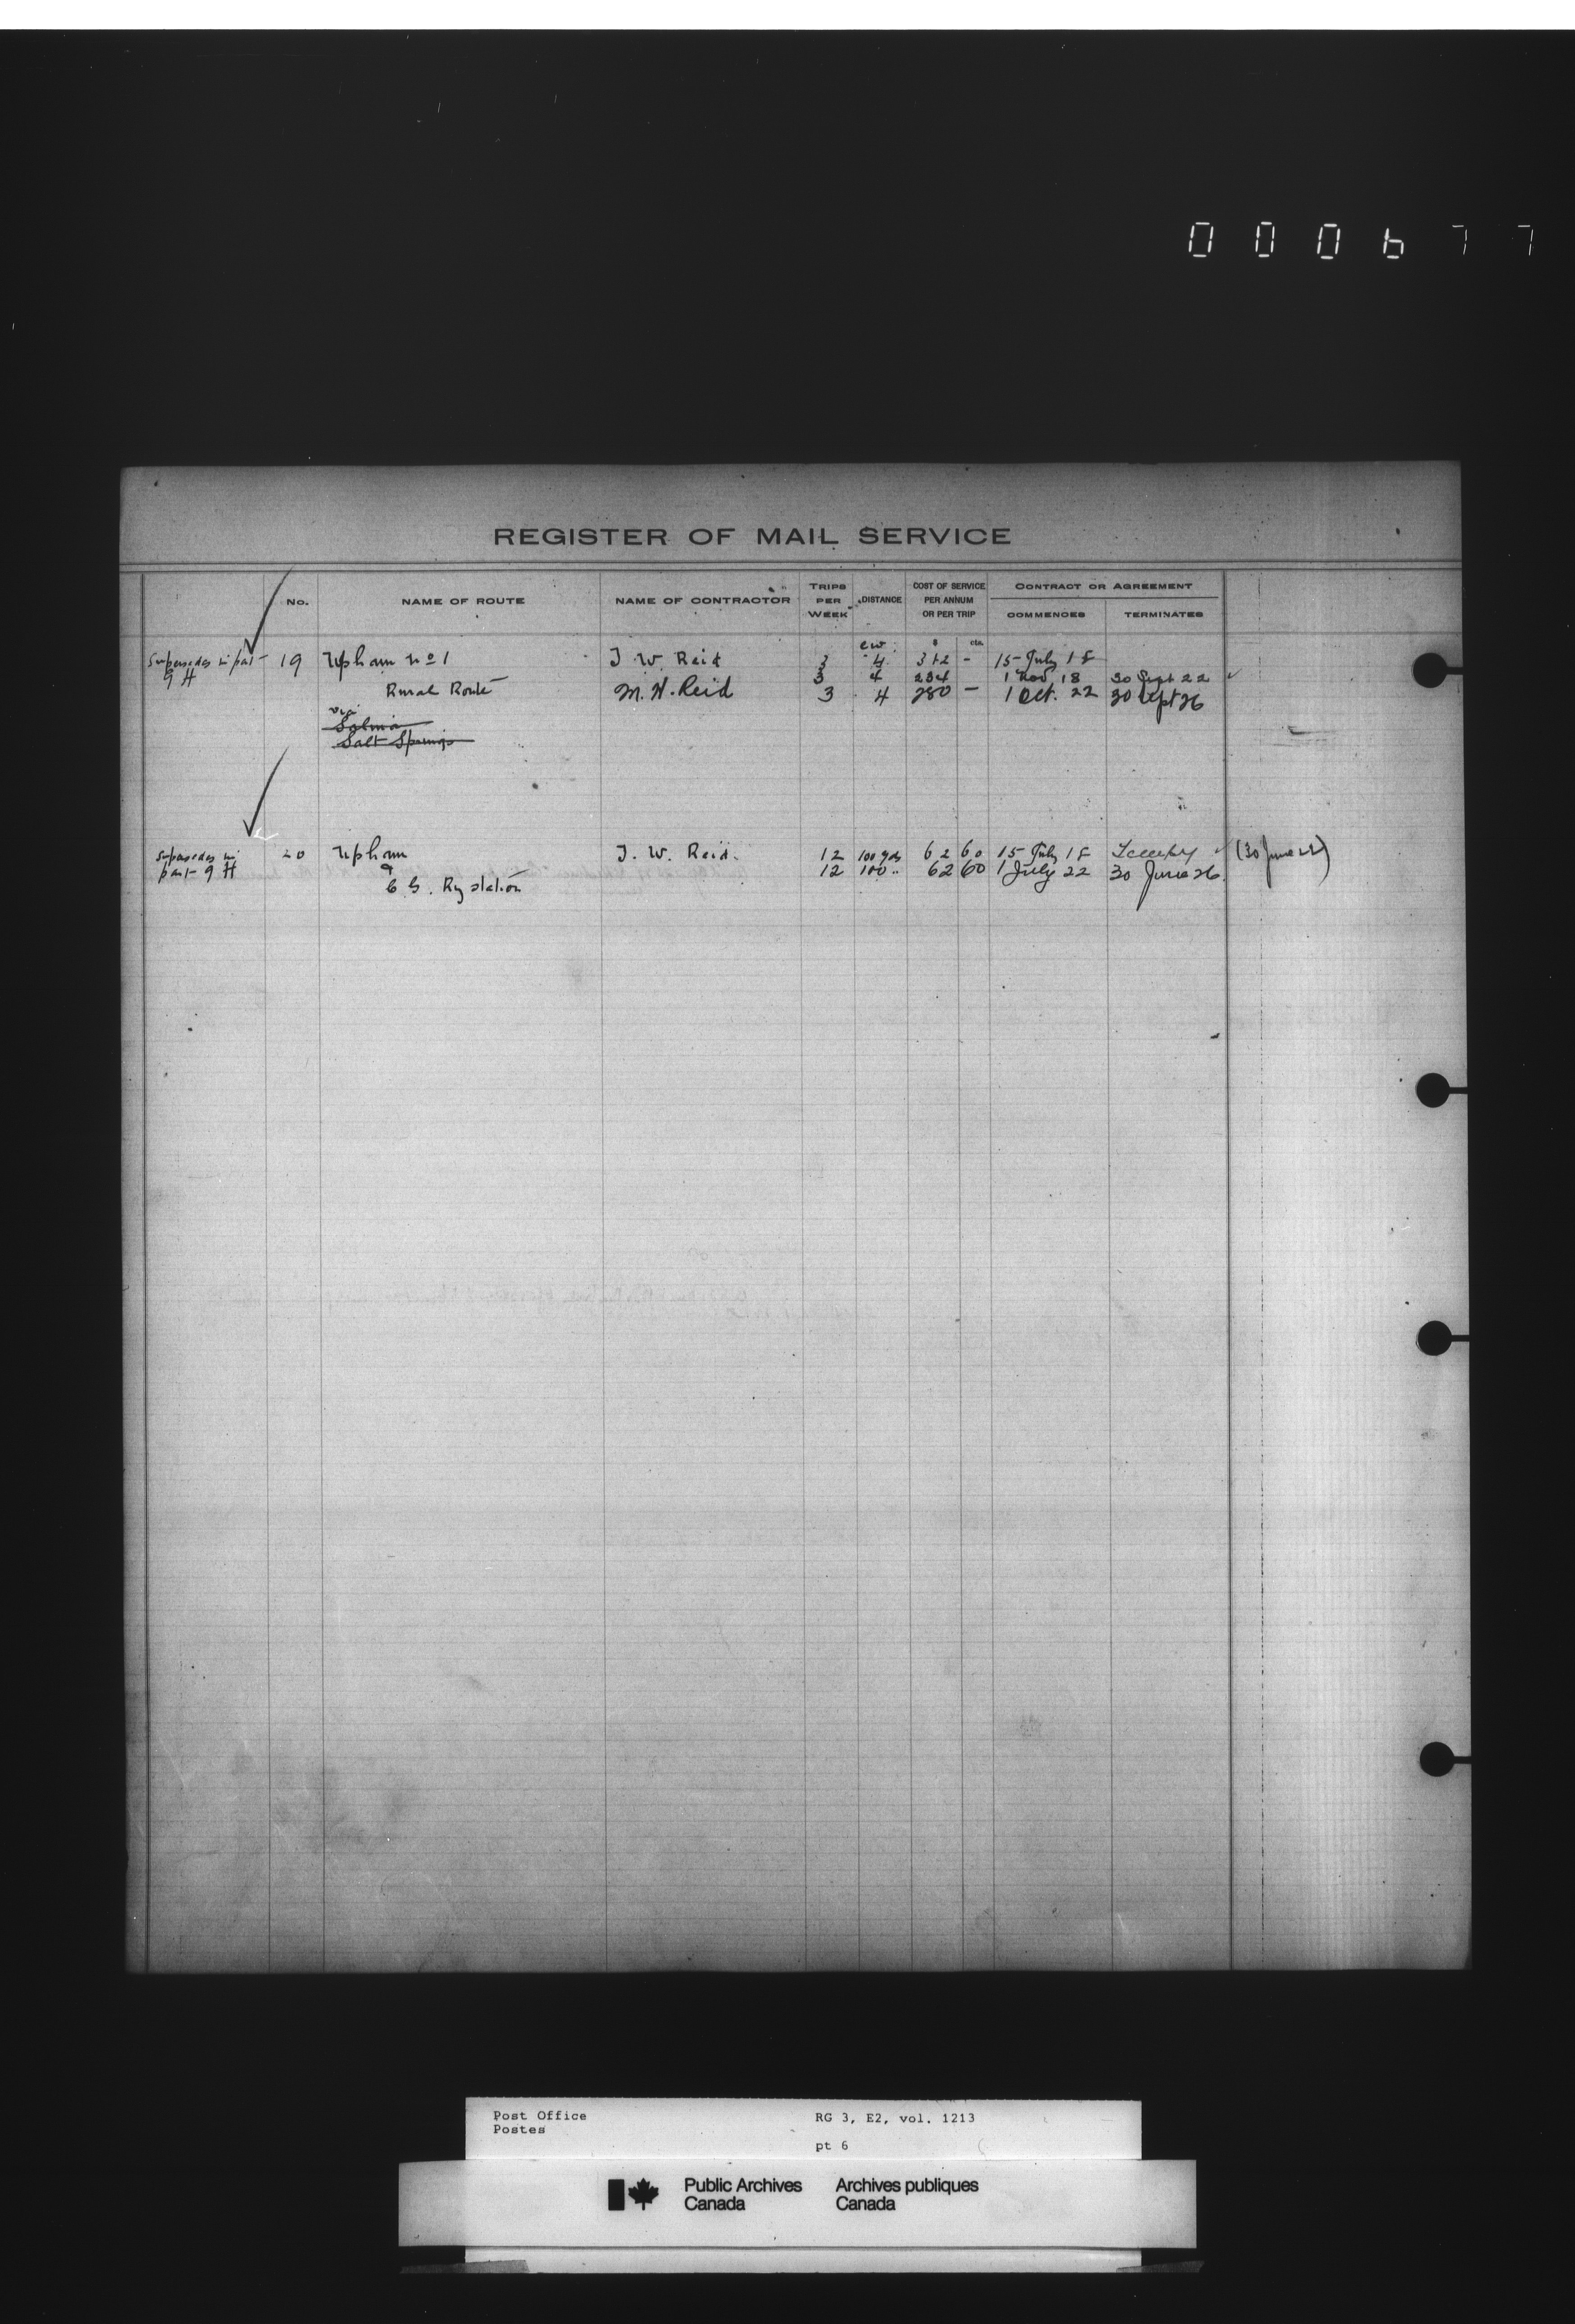 000677
REGISTER OF MAIL SERVICE
No. NAME OF ROUTE NAME OF CONTRACTOR TRIPS PER WEEK DISTANCE COST OF SERVICE PER ANNUM OR PER TRIP CONTRACT OR AGREEMENT
COMMENCES TERMINATES
$ cts.
c w.
Supersedes in part 19 Upham No 1 J. W. Reid 3 4 312 - 15 July 18
9 H 3 4 234 1 Nov 18 30 Sept 22
Rural Route M. H. Reid 3 4 280 - 1 Oct. 22 30 Sept 26
via
Salina
Salt Springs
Supersedes in 20 Upham J. W. Reid. 12 100 yds 62 60 15 July 18 Tempy (30 June 22)
part 9 H & 12 100 " 62 60 1 July 22 30 June 26.
C. G. Ry station
Post Office RG 3, E2, vol. 1213
Postes
pt 6
Public Archives Archives publiques
Canada Canada